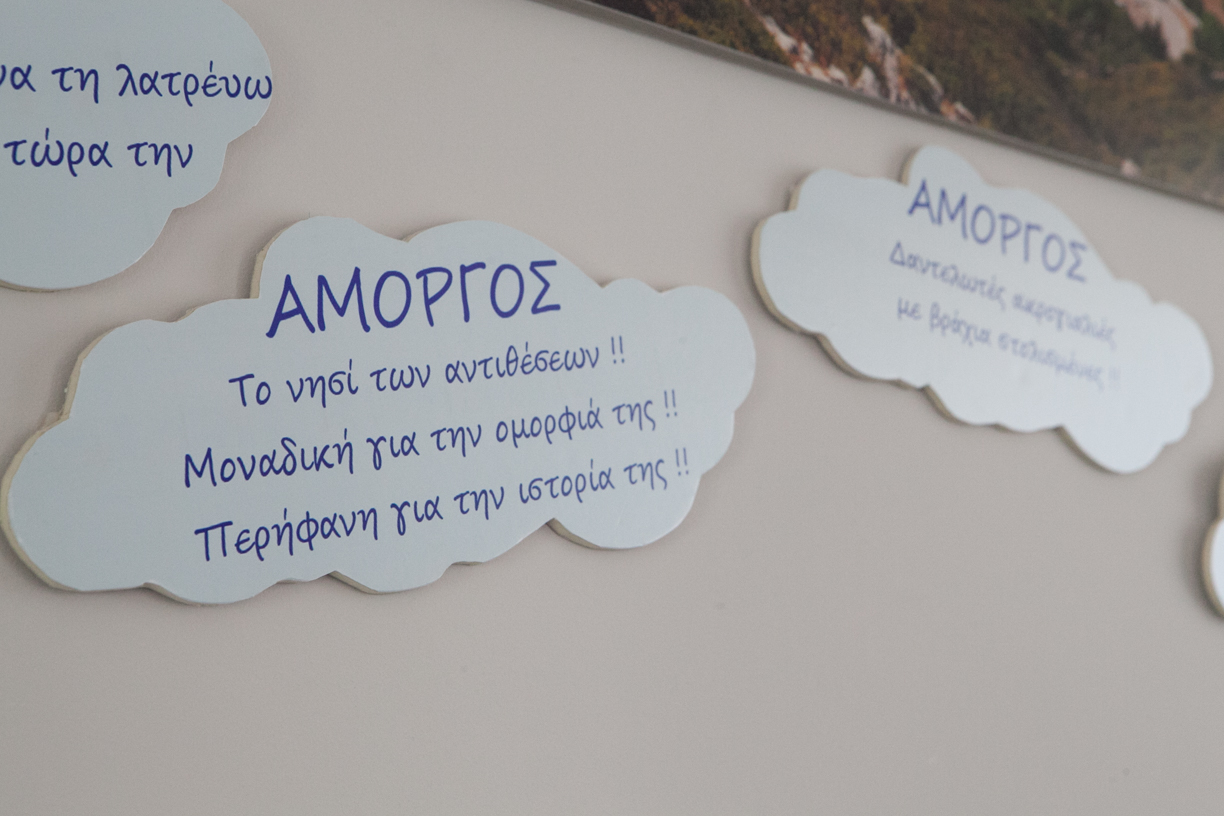 να τη λατρέυω
τώρα την
ΑΜΟΡΓΟΣ
Το νησί των αντιθέσεων !!
Μοναδική για την ομορφιά της !!
Περήφανη για την ιστορία της !!
ΑΜΟΡΓΟΣ
Δαντελωτές ακρογιαλιές
με βράχια στολισμένες !!